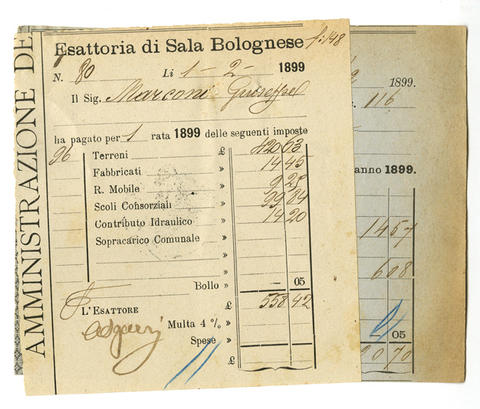 AMMINISTRAZIONE DE
Esattoria di Sala Bolognese
N. 80 Li 1-2- 1899
Il Sig. Marconi Giuseppe
ha pagato per 1 rata 1899 delle seguenti imposte
96 Terreni £ 420 63
Fabbricati » 14 45
R. Mobile » 9 25
Scoli Consorziali » 99 84
Contributo Idraulico » 14 20
Sopracarico Comunale »
Bollo » - 05
£ 558 42
L'ESATTORE
Multa 4 % »
Spese »
£
1899.
116
anno 1899.
14 57
6 08
05
70